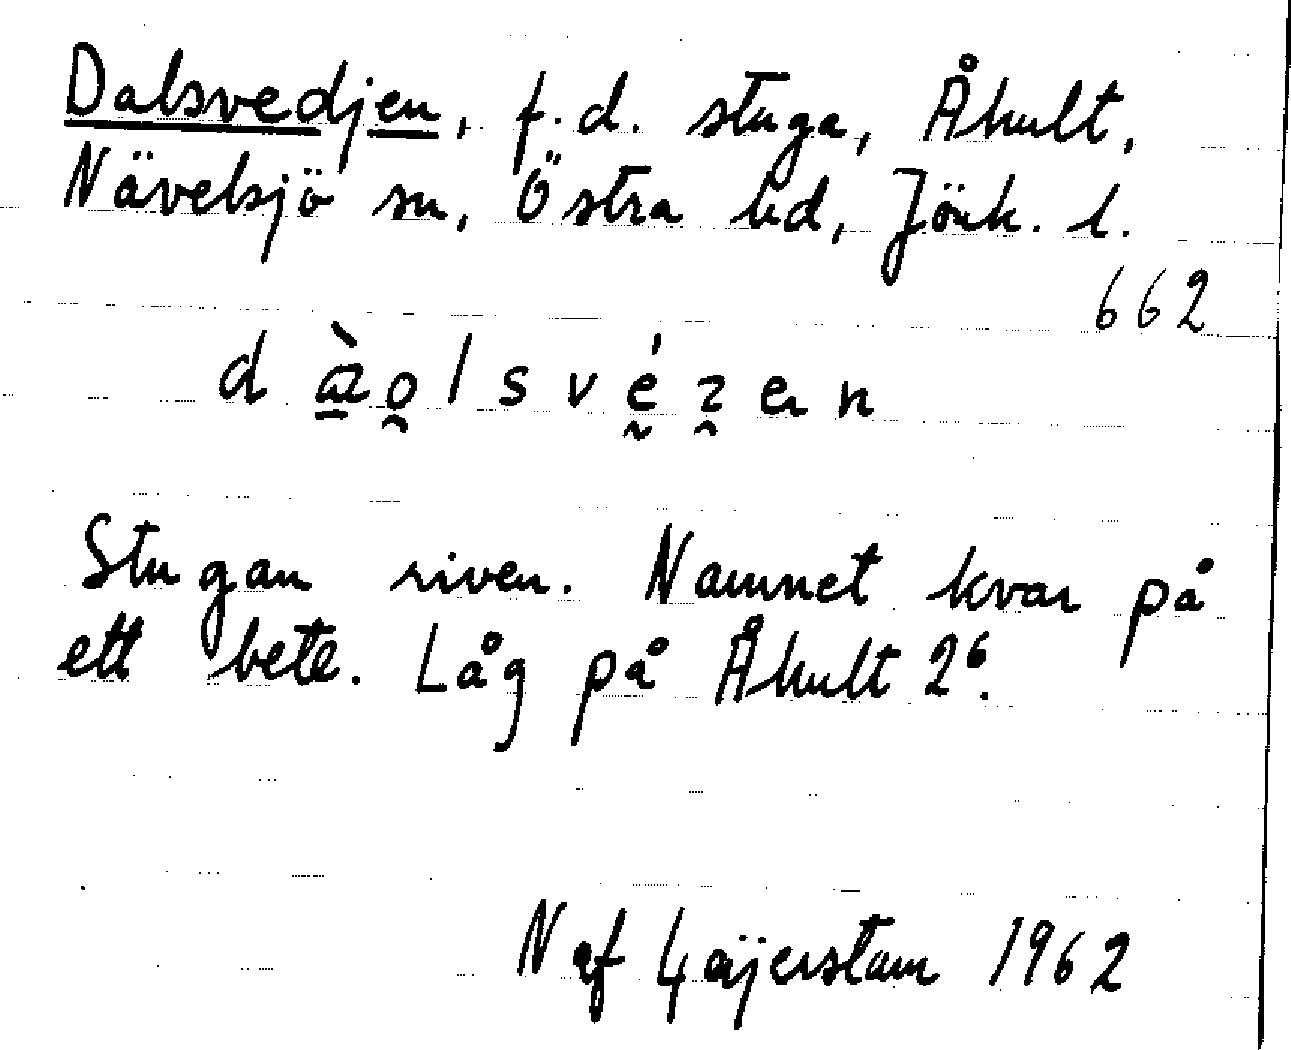 Dalsvedjen, f.d. stuga, Åhult,
Nävelsjö sn, Östra hd, Jönk. l.
662
Stugan riven. Namnet kvar på
ett bete. Låg på Åhult 2⁶.
Naf Gäijerstam 1962